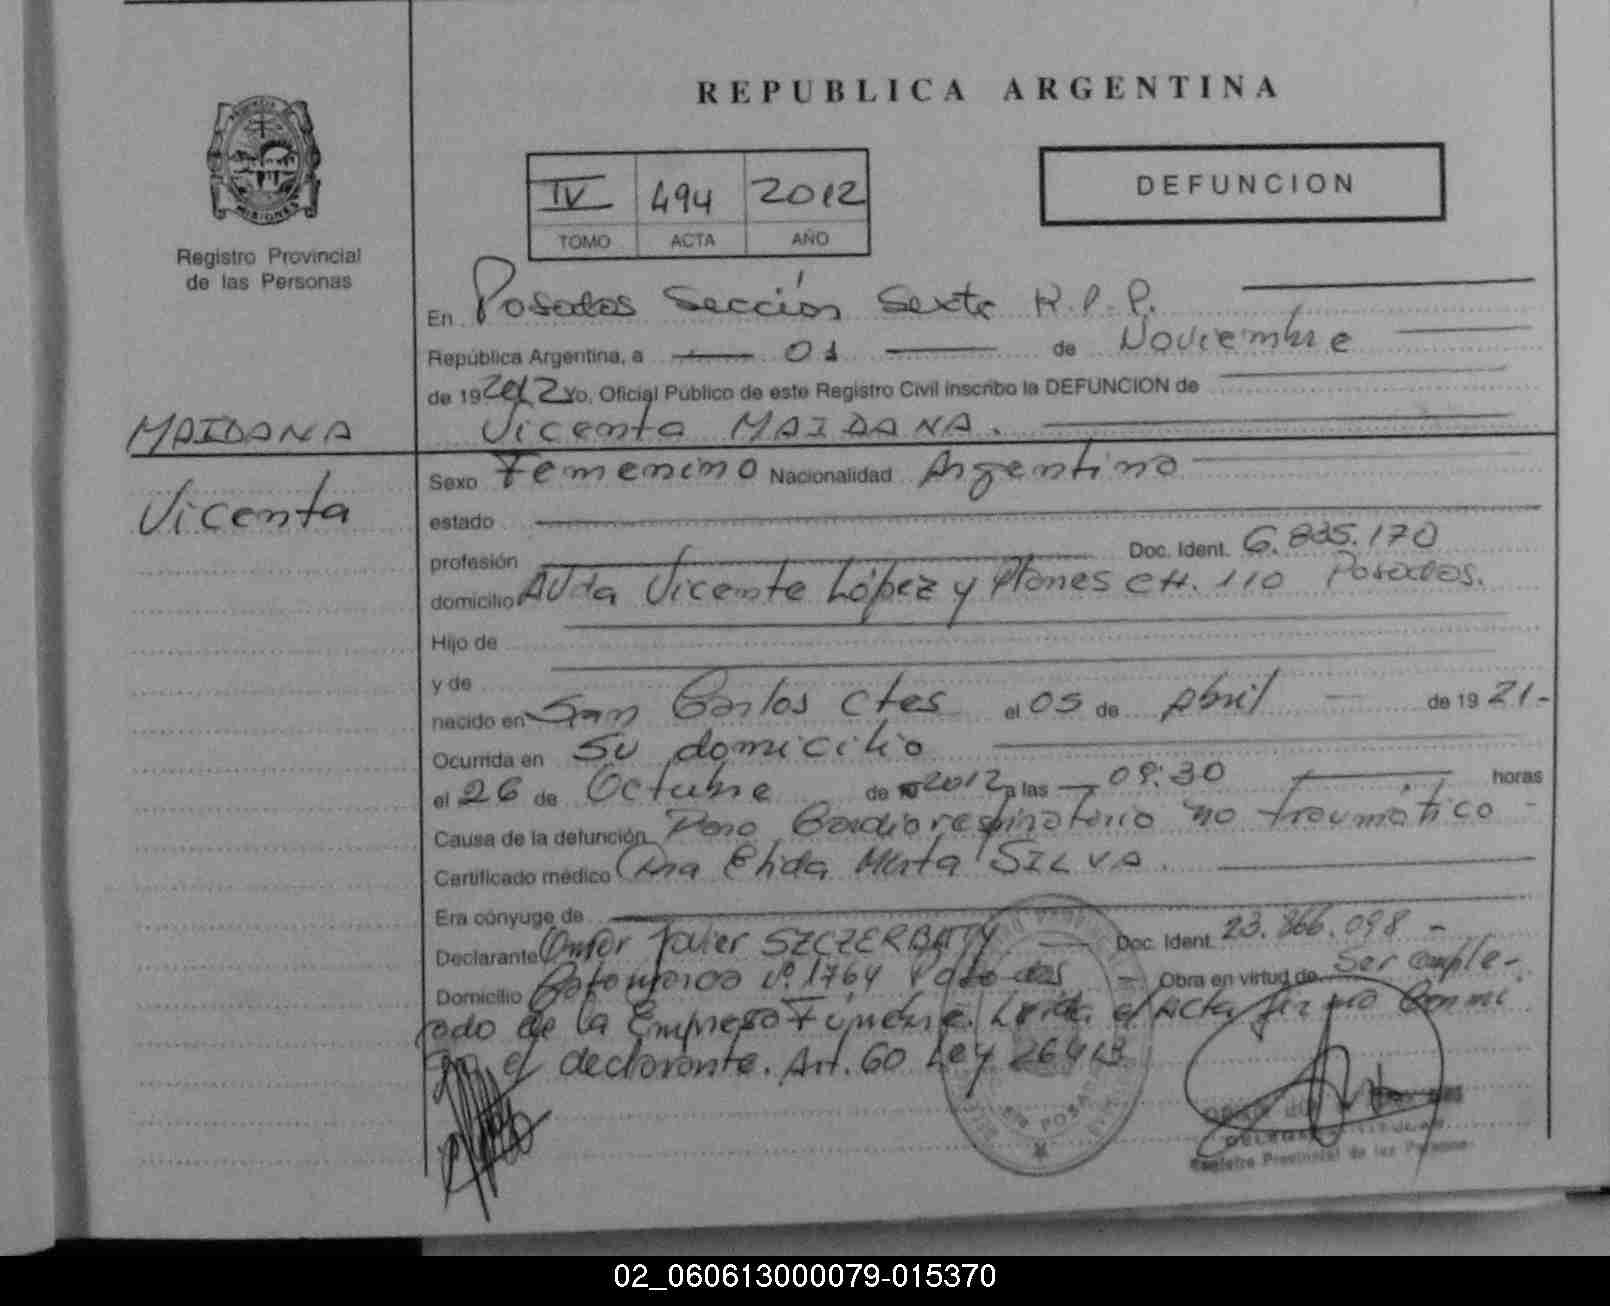 REPUBLICA ARGENTINA
PROVINCIA
MISIONES
Registro Provincial
de las Personas
IV 494 2012
TOMO ACTA AÑO
DEFUNCION
En Posadas Sección Sexta R.P.P.
República Argentina, a 01 de Noviembre
de 19 2012 Yo, Oficial Público de este Registro Civil inscribo la DEFUNCION de
MAIDANA
Vicenta MAIDANA.
Vicenta
Sexo Femenino Nacionalidad Argentina
estado
profesión Doc. Ident. 6.835.170
domicilio Avda Vicente López y Planes CH. 110 Posadas.
Hijo de
y de
nacido en San Carlos Ctes el 05 de Abril de 19 21-
Ocurrida en Su domicilio
el 26 de Octubre de 2012 a las 09:30 horas
Causa de la defunción Paro Cardiorespiratorio no traumático -
Certificado médico Dra Elida Mirta SILVA.
Era cónyuge de
Declarante Omar Javier SZCZERBATY Doc. Ident. 23.866.098 -
Domicilio Catamarca Nº 1764 Posadas - Obra en virtud de Ser emple-
ado de la Empresa Fúnebre. Leída el Acta firma conmi
go el declarante. Art. 60 Ley 26413
POSADAS
Registro Provincial de las Personas
02_060613000079-015370